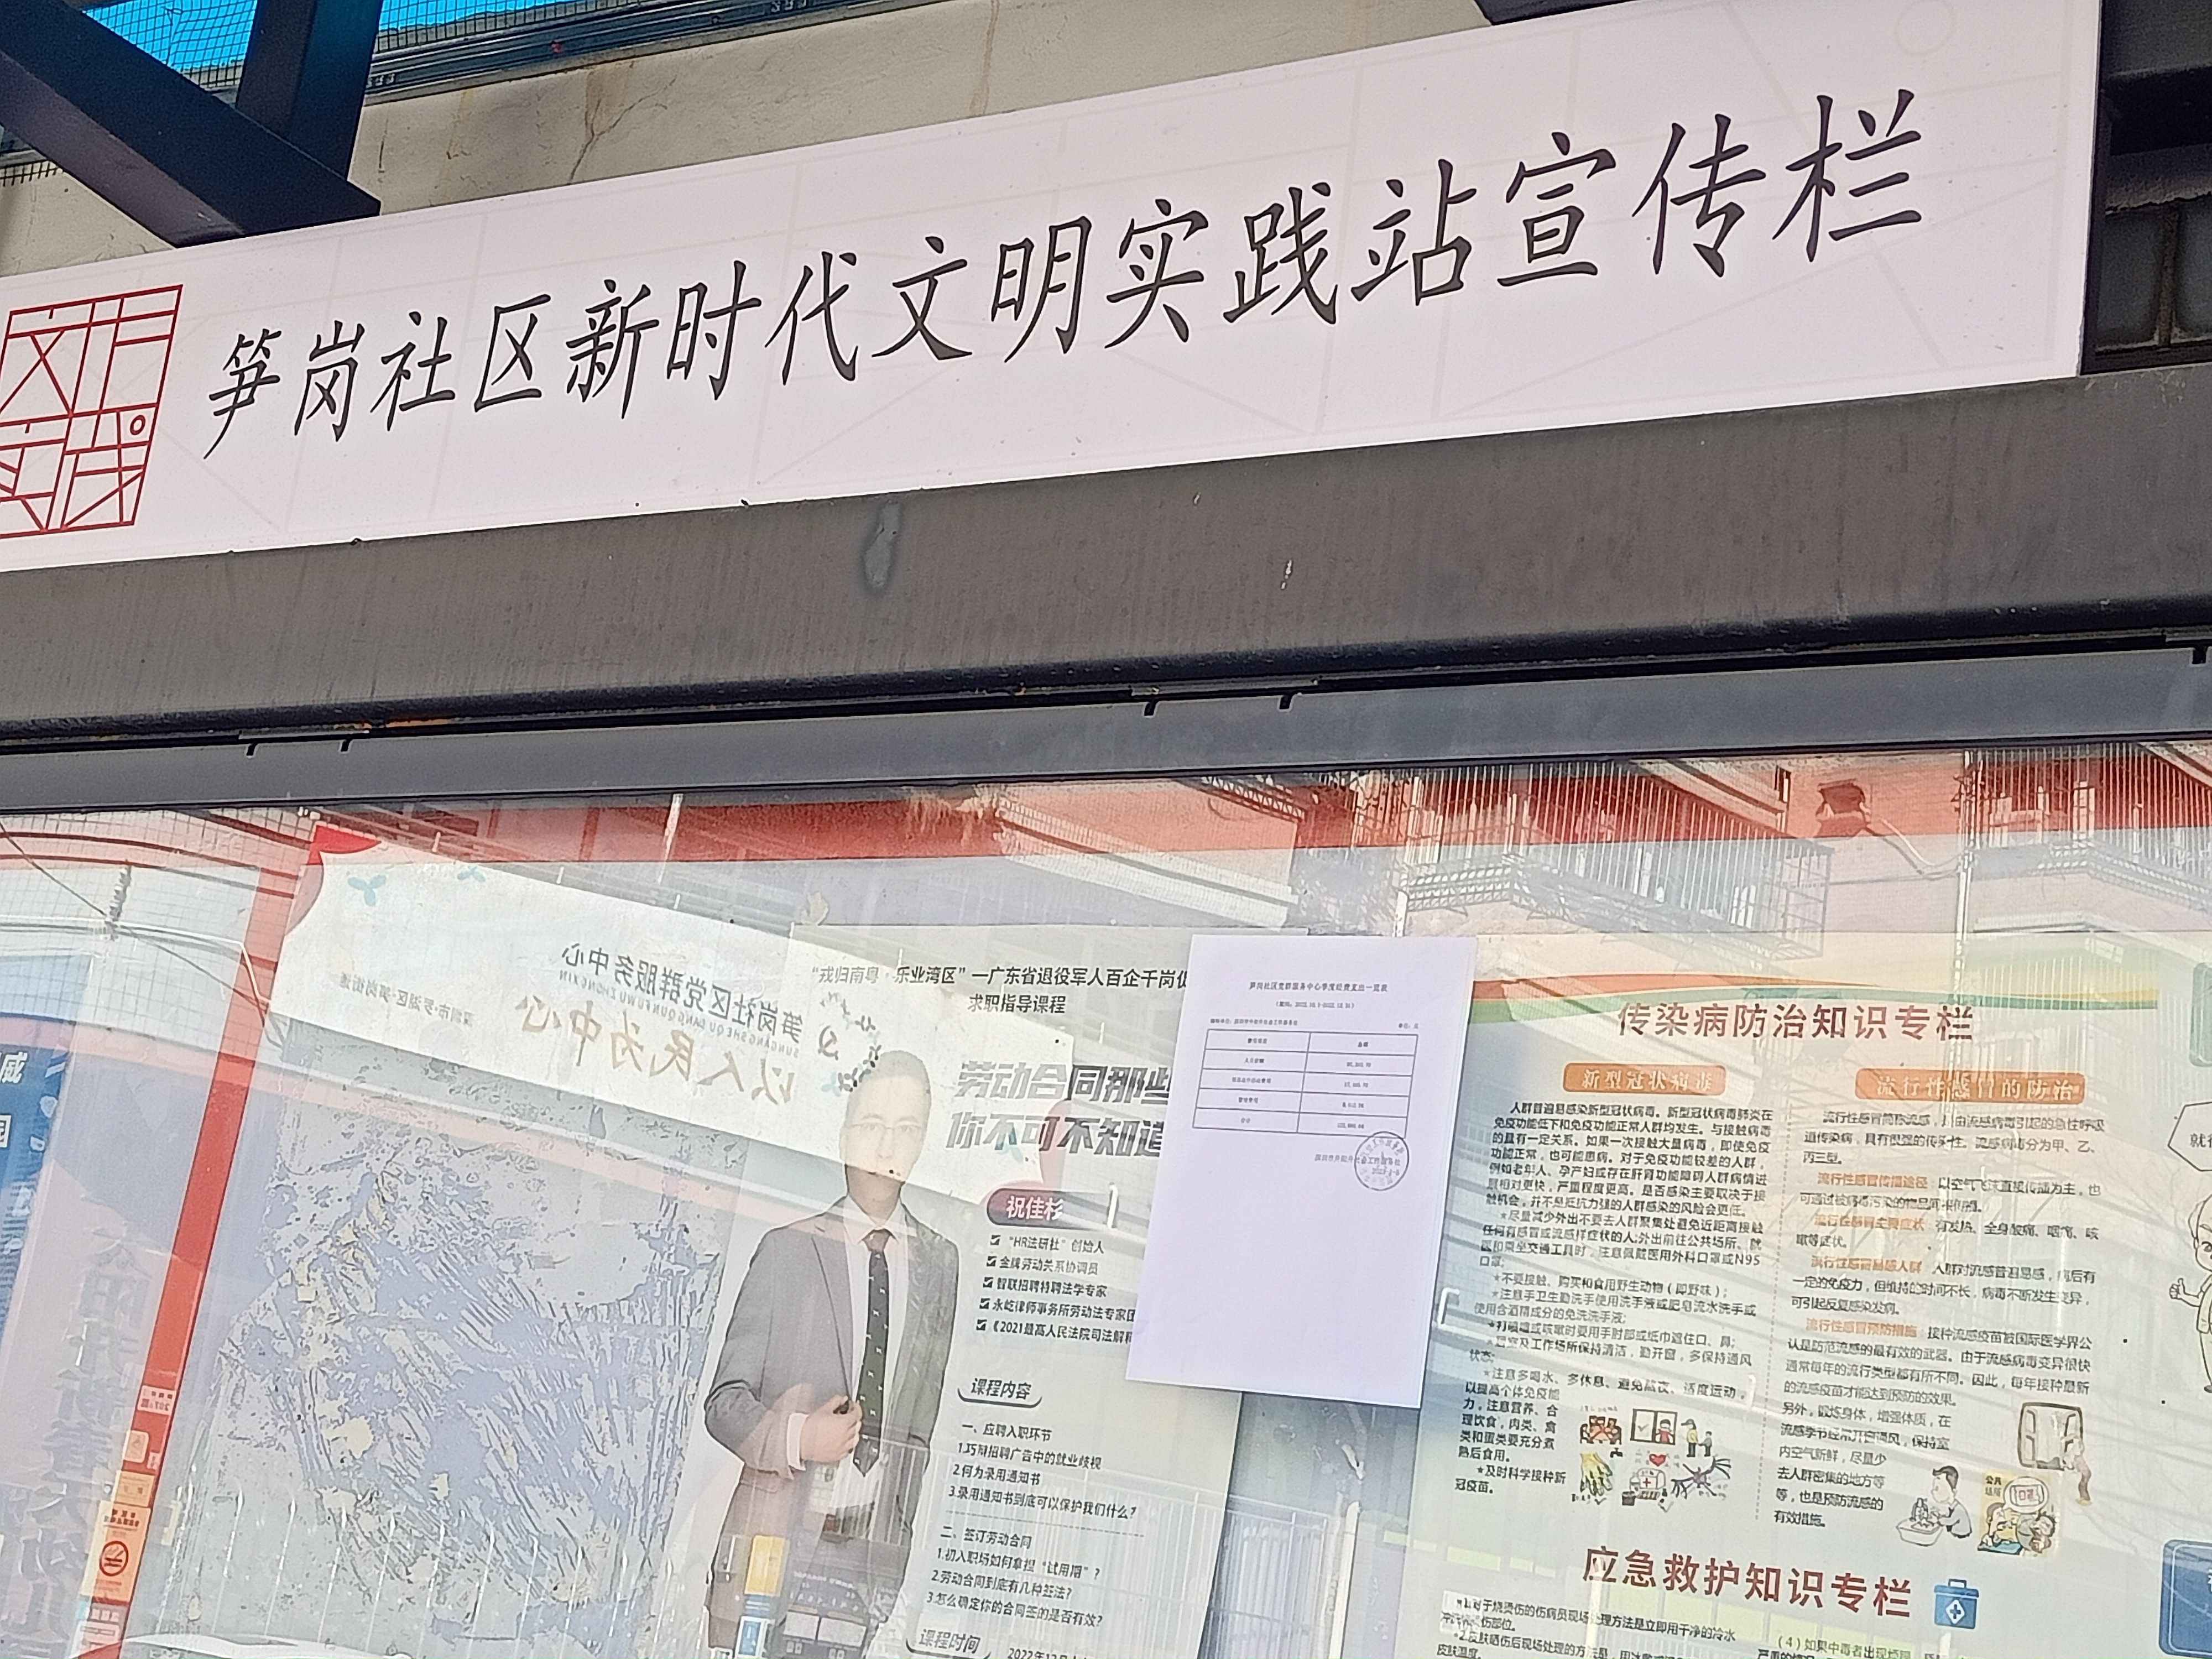 笋岗社区新时代文明实践站宣传栏
笋岗社区党群服务中心
SUNGANGSHEQU DANGQUNFUWUZHONGXIN
以人民为中心
深圳市·罗湖区·笋岗街道
“戎归南粤·乐业湾区”—广东省退役军人百企千岗
求职指导课程
劳动合同那些
你不可不知道
祝佳杉
“HR法研社”创始人
金牌劳动关系协调员
智联招聘特聘法学专家
永屹律师事务所劳动法专家
《2021最高人民法院司法解释
课程内容
一、应聘入职环节
1.巧辩招聘广告中的就业歧视
2.何为录用通知书
3.录用通知书到底可以保护我们什么?
二、签订劳动合同
1.初入职场如何拿捏“试用期”?
2.劳动合同到底有几种签法?
3.怎么确定你的合同签的是否有效?
课程时间
2022年12月
笋岗社区党群服务中心季度经费支出一览表
单位:元
费用项目 金额
合计
传染病防治知识专栏
新型冠状病毒
人群普遍易感染新型冠状病毒。新型冠状病毒肺炎在
免疫功能低下和免疫功能正常人群均发生。与接触病毒
的量有一定关系。如果一次接触大量病毒,即使免疫
功能正常,也可能患病。对于免疫功能较差的人群,
例如老年人、孕产妇或存在肝肾功能障碍人群病情进
展相对更快,严重程度更高。是否感染主要取决于接
触机会,并不是抵抗力强的人群感染的风险会更低。
*尽量减少外出不要去人群聚集处避免近距离接触
任何有感冒或流感样症状的人;外出前往公共场所、就
医和乘坐交通工具时,注意佩戴医用外科口罩或N95
口罩;
*不要接触、购买和食用野生动物(即野味);
*注意手卫生勤洗手使用洗手液或肥皂流水洗手或
使用含酒精成分的免洗洗手液;
*打喷嚏或咳嗽时要用手肘部或纸巾遮住口、鼻;
*居室及工作场所保持清洁,勤开窗,多保持通风
状态;
*注意多喝水、多休息、避免熬夜、适度运动,
以提高个体免疫能
力,注意营养、合
理饮食,肉类、禽
类和蛋类要充分煮
熟后食用。
*及时科学接种新
冠疫苗。
流行性感冒的防治
流行性感冒简称流感,是由流感病毒引起的急性呼吸
道传染病,具有很强的传染性。流感病毒分为甲、乙、
丙三型。
流行性感冒传播途径 以空气飞沫直接传播为主,也
可通过被病毒污染的物品间接传播。
流行性感冒主要症状 有发热、全身酸痛、咽痛、咳
嗽等症状。
流行性感冒易感人群 人群对流感普遍易感,病后有
一定的免疫力,但维持的时间不长,病毒不断发生变异,
可引起反复感染发病。
流行性感冒预防措施 接种流感疫苗被国际医学界公
认是防范流感的最有效的武器。由于流感病毒变异很快
通常每年的流行类型都有所不同。因此,每年接种最新
的流感疫苗才能达到预防的效果。
另外,锻炼身体,增强体质,在
流感季节经常开窗通风,保持室
内空气新鲜,尽量少
去人群密集的地方等
等,也是预防流感的
有效措施。
公共
场所
口罩
应急救护知识专栏
对于烧烫伤的伤病员现场处理方法是立即用干净的冷水
伤部位。
2.皮肤晒伤后现场处理的方法是
皮肤温度。
(4)如果中毒者出现烦躁